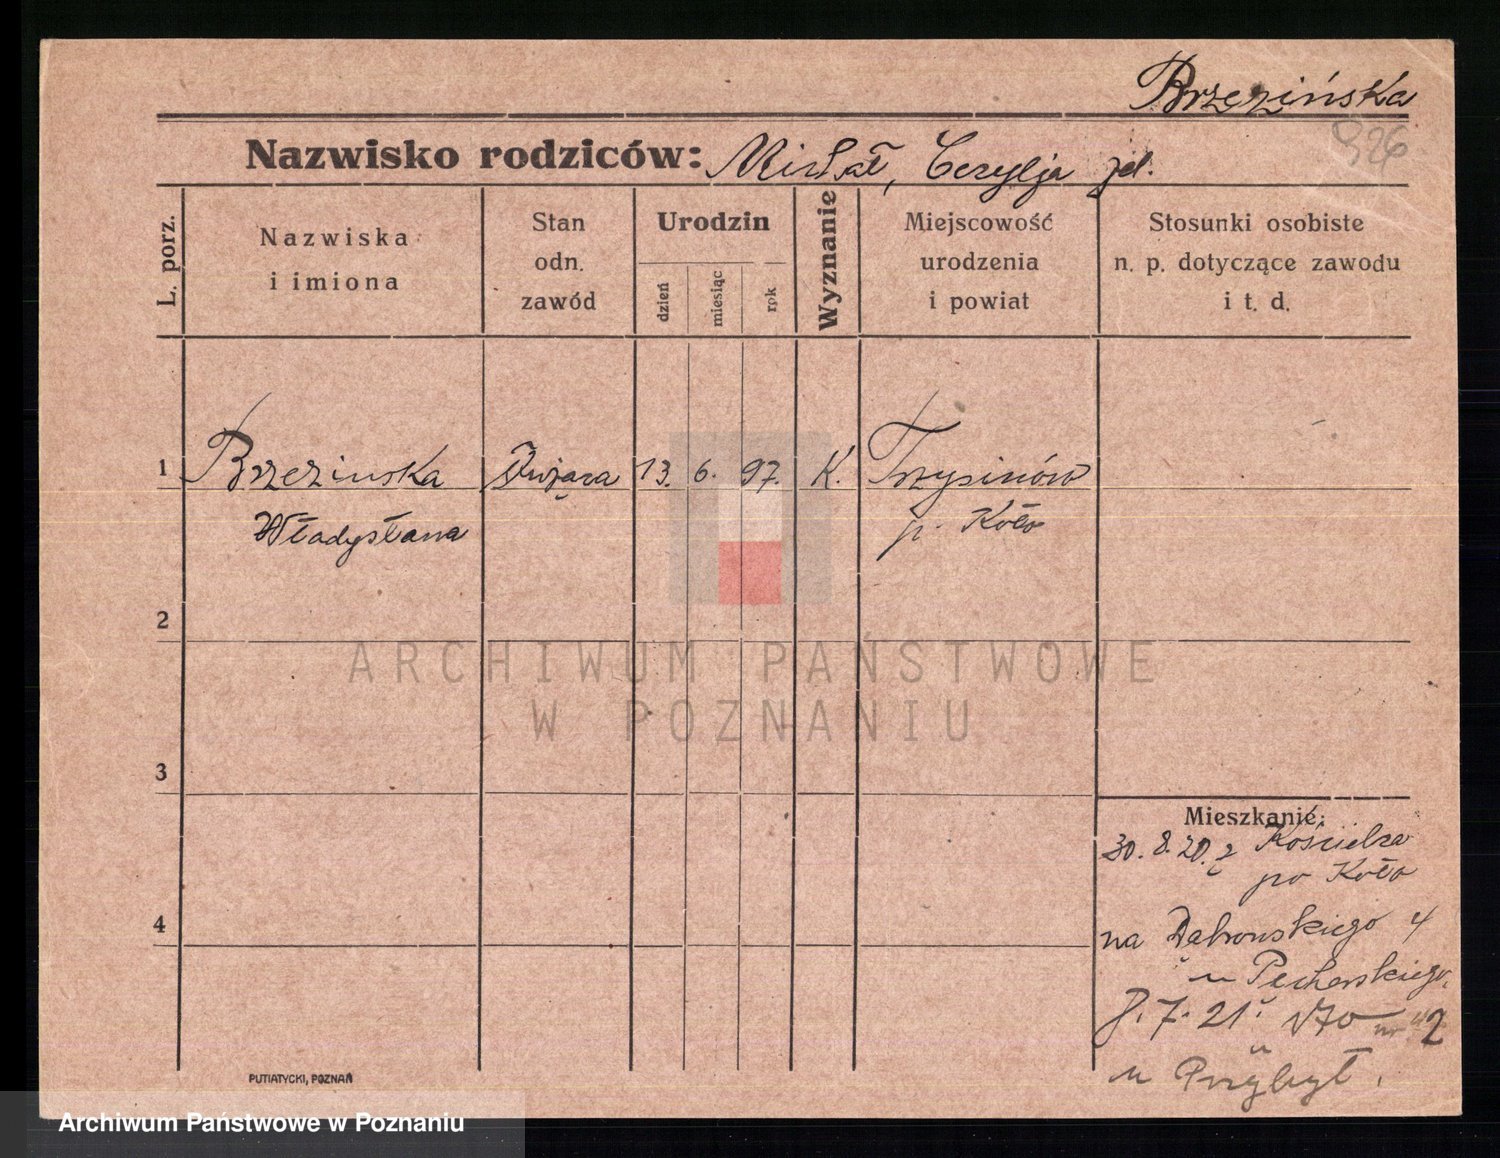 Brzezińska
926
Nazwisko rodziców: Michał, Cecylja
L. porz.
Nazwiska i imiona
Stan odn. zawód
Urodzin
dzień
miesiąc
rok
Wyznanie
Miejscowość urodzenia i powiat
Stosunki osobiste n. p. dotyczące zawodu i t. d.
1 Brzezinska 13. 6. 97. K.
Władysława p. Koło
2
ARCHIWUM PAŃSTWOWE
W POZNANIU
3
Mieszkanie:
30. 8. 20. z Kościelca
po Koło
4
na Dąbrowskiego 4
u
8. 7. 21. 2
u Przybył.
PUTIATYCKI, POZNAŃ
Archiwum Państwowe w Poznaniu